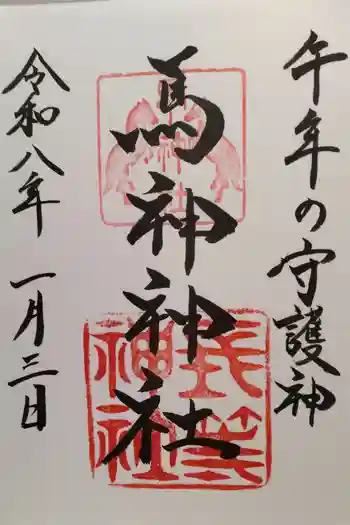 午年の守護神
馬神神社
令和八年 一月三日